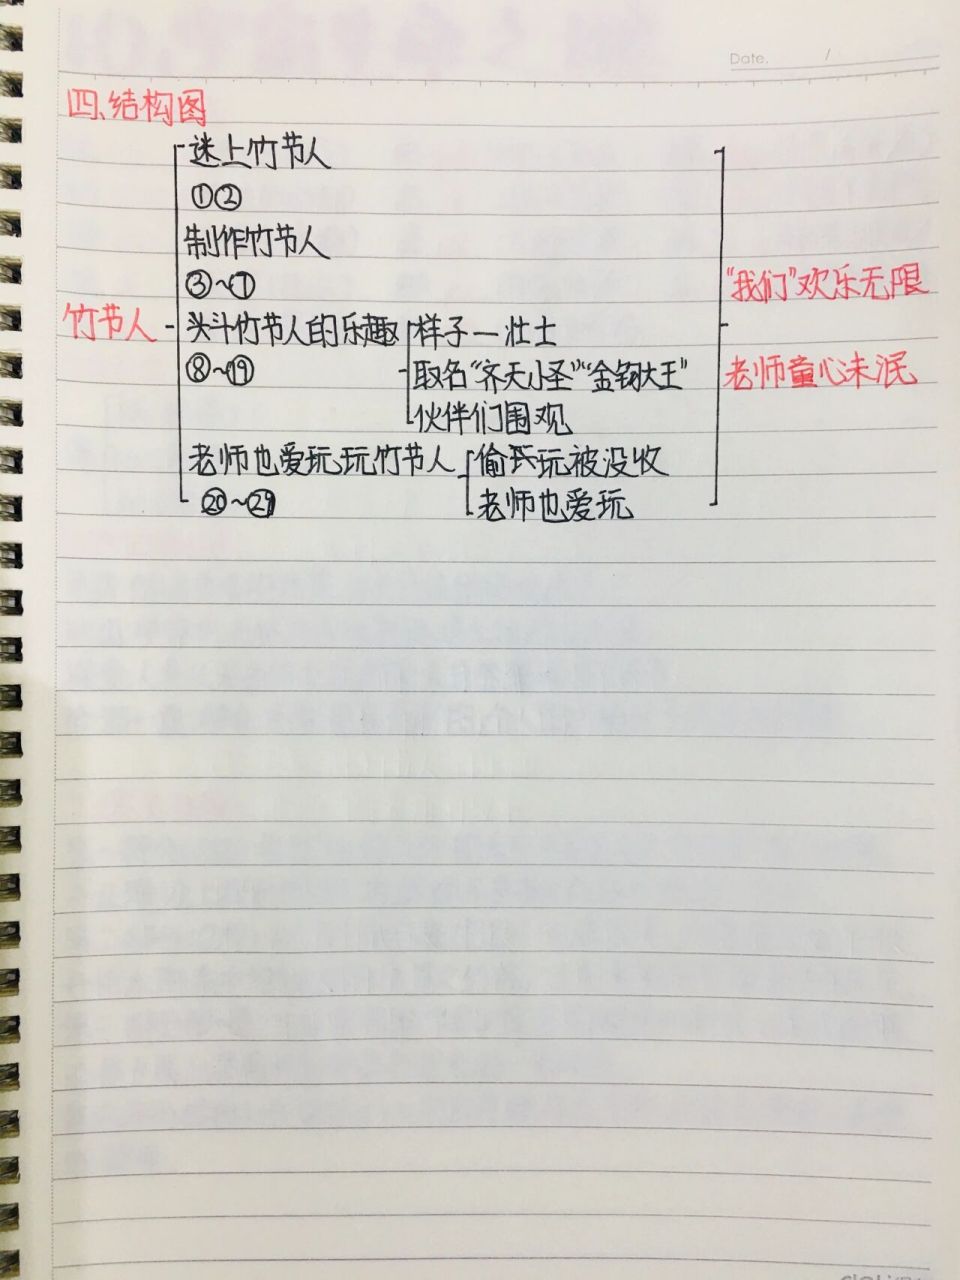 Date. /
四、结构图
迷上竹节人
①②
制作竹节人
③~⑦
竹节人
头斗竹节人的乐趣
⑧~⑲
样子一壮士
取名"齐天小圣""金钢大王"
伙伴们围观
老师也爱玩玩竹节人
⑳~㉙
偷玩被没收
老师也爱玩
"我们"欢乐无限
老师童心未泯